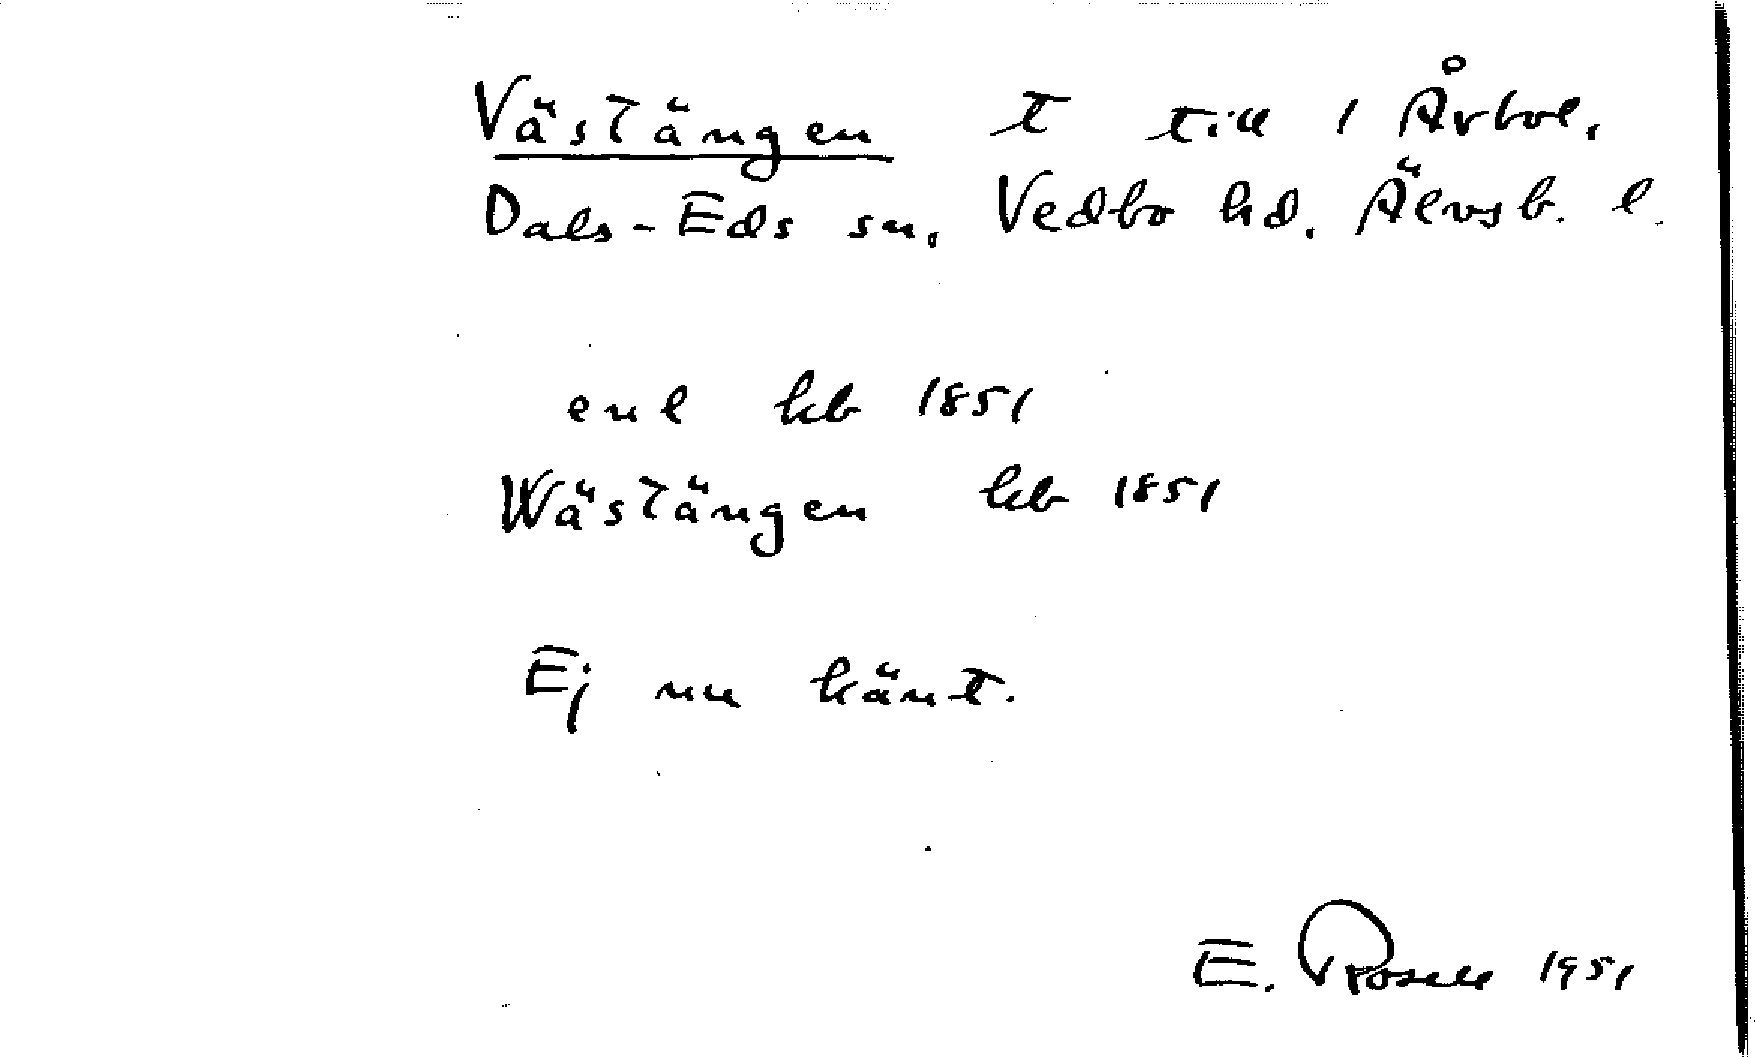 Västängen t till 1 Årbol,
Dals-Eds sn, Vedbo hd. Älvsb. l.
enl kb 1851
Wästängen kb 1851
Ej nu känt.
E. Rosell 1951